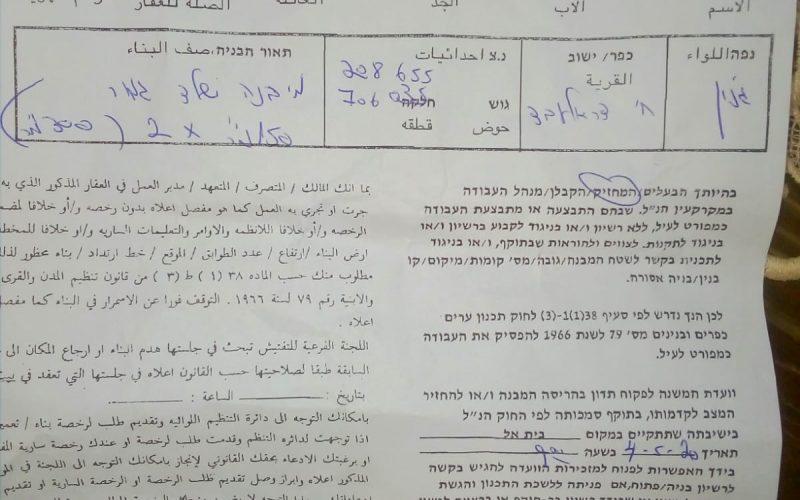 الاسم الاب الجد العائلة الصلة للعقار
נפה اللواء
כפר/ ישוב
القرية
נ.צ احداثيات
תאור הבניה, صف البناء
ג'נין
228 655
706
גוש חלקה
حوض قطقه
מיבנה
X 2
بما انك المالك / المتصرف / المتعهد / مدير العمل في العقار المذكور الذي به
جرت او تجري به العمل كما هو مفصل اعلاه بدون رخصه و/أو خلافا لمضمون
الرخصه و/أو خلافا للانظمه والاوامر والتعليمات الساريه و/او خلافا للمخطط
ارض البناء /ارتفاع / عدد الطوابق / الموقع / خط ارتداد / بناء عظور لذلك
مطلوب منك حسب الماده ٣٨ (١) ط (٣) من قانون تنظيم المدن والقرى
والابنية رقم ٧٩ لسنة ١٩٦٦ . التوقف فورا عن الاسمرار في البناء كما مفصل
اعلاه .
اللجنة الفرعية للتفتيش تبحث في جلستها هدم البناء او ارجاع المكان الى
السابقة طبقا لصلاحيتها حسب القانون اعلاه في جلستها التي تعقد في بيت
بتاريخ : الساعة :
بامكانك التوجه الى دائرة التنظيم اللوائيه وتقديم طلب لرخصة بناء /
اذا توجهت لدائره التنظم وقدمت طلب لرخصة او عندك رخصة سارية
او برغبتك الادعاء بحقك القانوني لإنجاز بامكانك التوجه الى اللجنة في
المذكور اعلاه وابراز وصل تقديم طلب الرخصة او الرخصة السارية او تقديم
בהיותך הבעלים/המחזיק/הקבלן/מנהל העבודה
במקרקעין הנ"ל. שבהם התבצעה או מתבצעת העבודה
כמפורט לעיל, ללא רשיון ו/או בניגוד לקבוע ברשיון ו/או
בניגוד לתקנות. לצווים ולהוראות שבתוקף, ו/או בניגוד
לתכניות בקשר לשטח המבנה/גובה/מס' קומות/מיקום/קו
בנין/בניה אסורה.
לכן הנך נדרש לפי סעיף 38(1)-(3) לחוק תכנון ערים
כפרים ובנינים מס' 79 לשנת 1966 להפסיק את העבודה
כמפורט לעיל.
וועדת המשנה לפקוח תדון בהריסה המבנה ו/או להחזיר
המצב לקדמותו, בתוקף סמכותה לפי החוק הנ"ל
בישיבתה שתתקיים במקום בית אל
תאריך 4-5-20 בשעה
בידך האפשרות לפנות למזכירות הוועדה להגיש בקשה
לרשיון בניה/פתוח, אם פניתה ללשכת התכנון והגשת